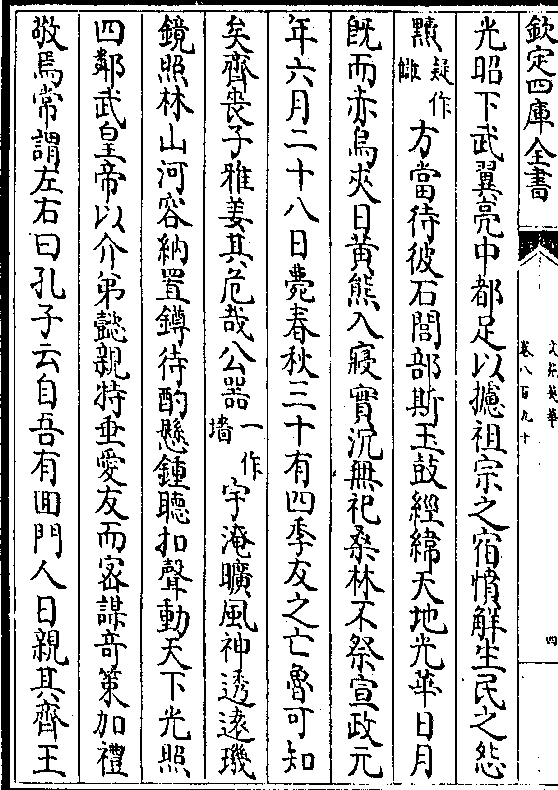 欽定四庫全書
文苑英華
卷八百九十
四
光昭下武翼亮中都足以攄祖宗之宿憤解生民之怨
黷疑作讎方當待彼石閭部斯玉鼓經緯天地光華日月
旣而赤烏夾日黃熊入寢實沉無祀桑林不祭宣政元
年六月二十八日薨春秋三十有四季友之亡魯可知
矣齊喪子雅姜其危哉公器一作墻宇淹曠風神透遠璣
鏡照林山河容納置鐏待酌懸鍾聽扣聲動天下光照
四鄰武皇帝以介弟懿親特垂愛友而密謀竒策加禮
敬焉常謂左右曰孔子云自吾有囬門人日親其齊王